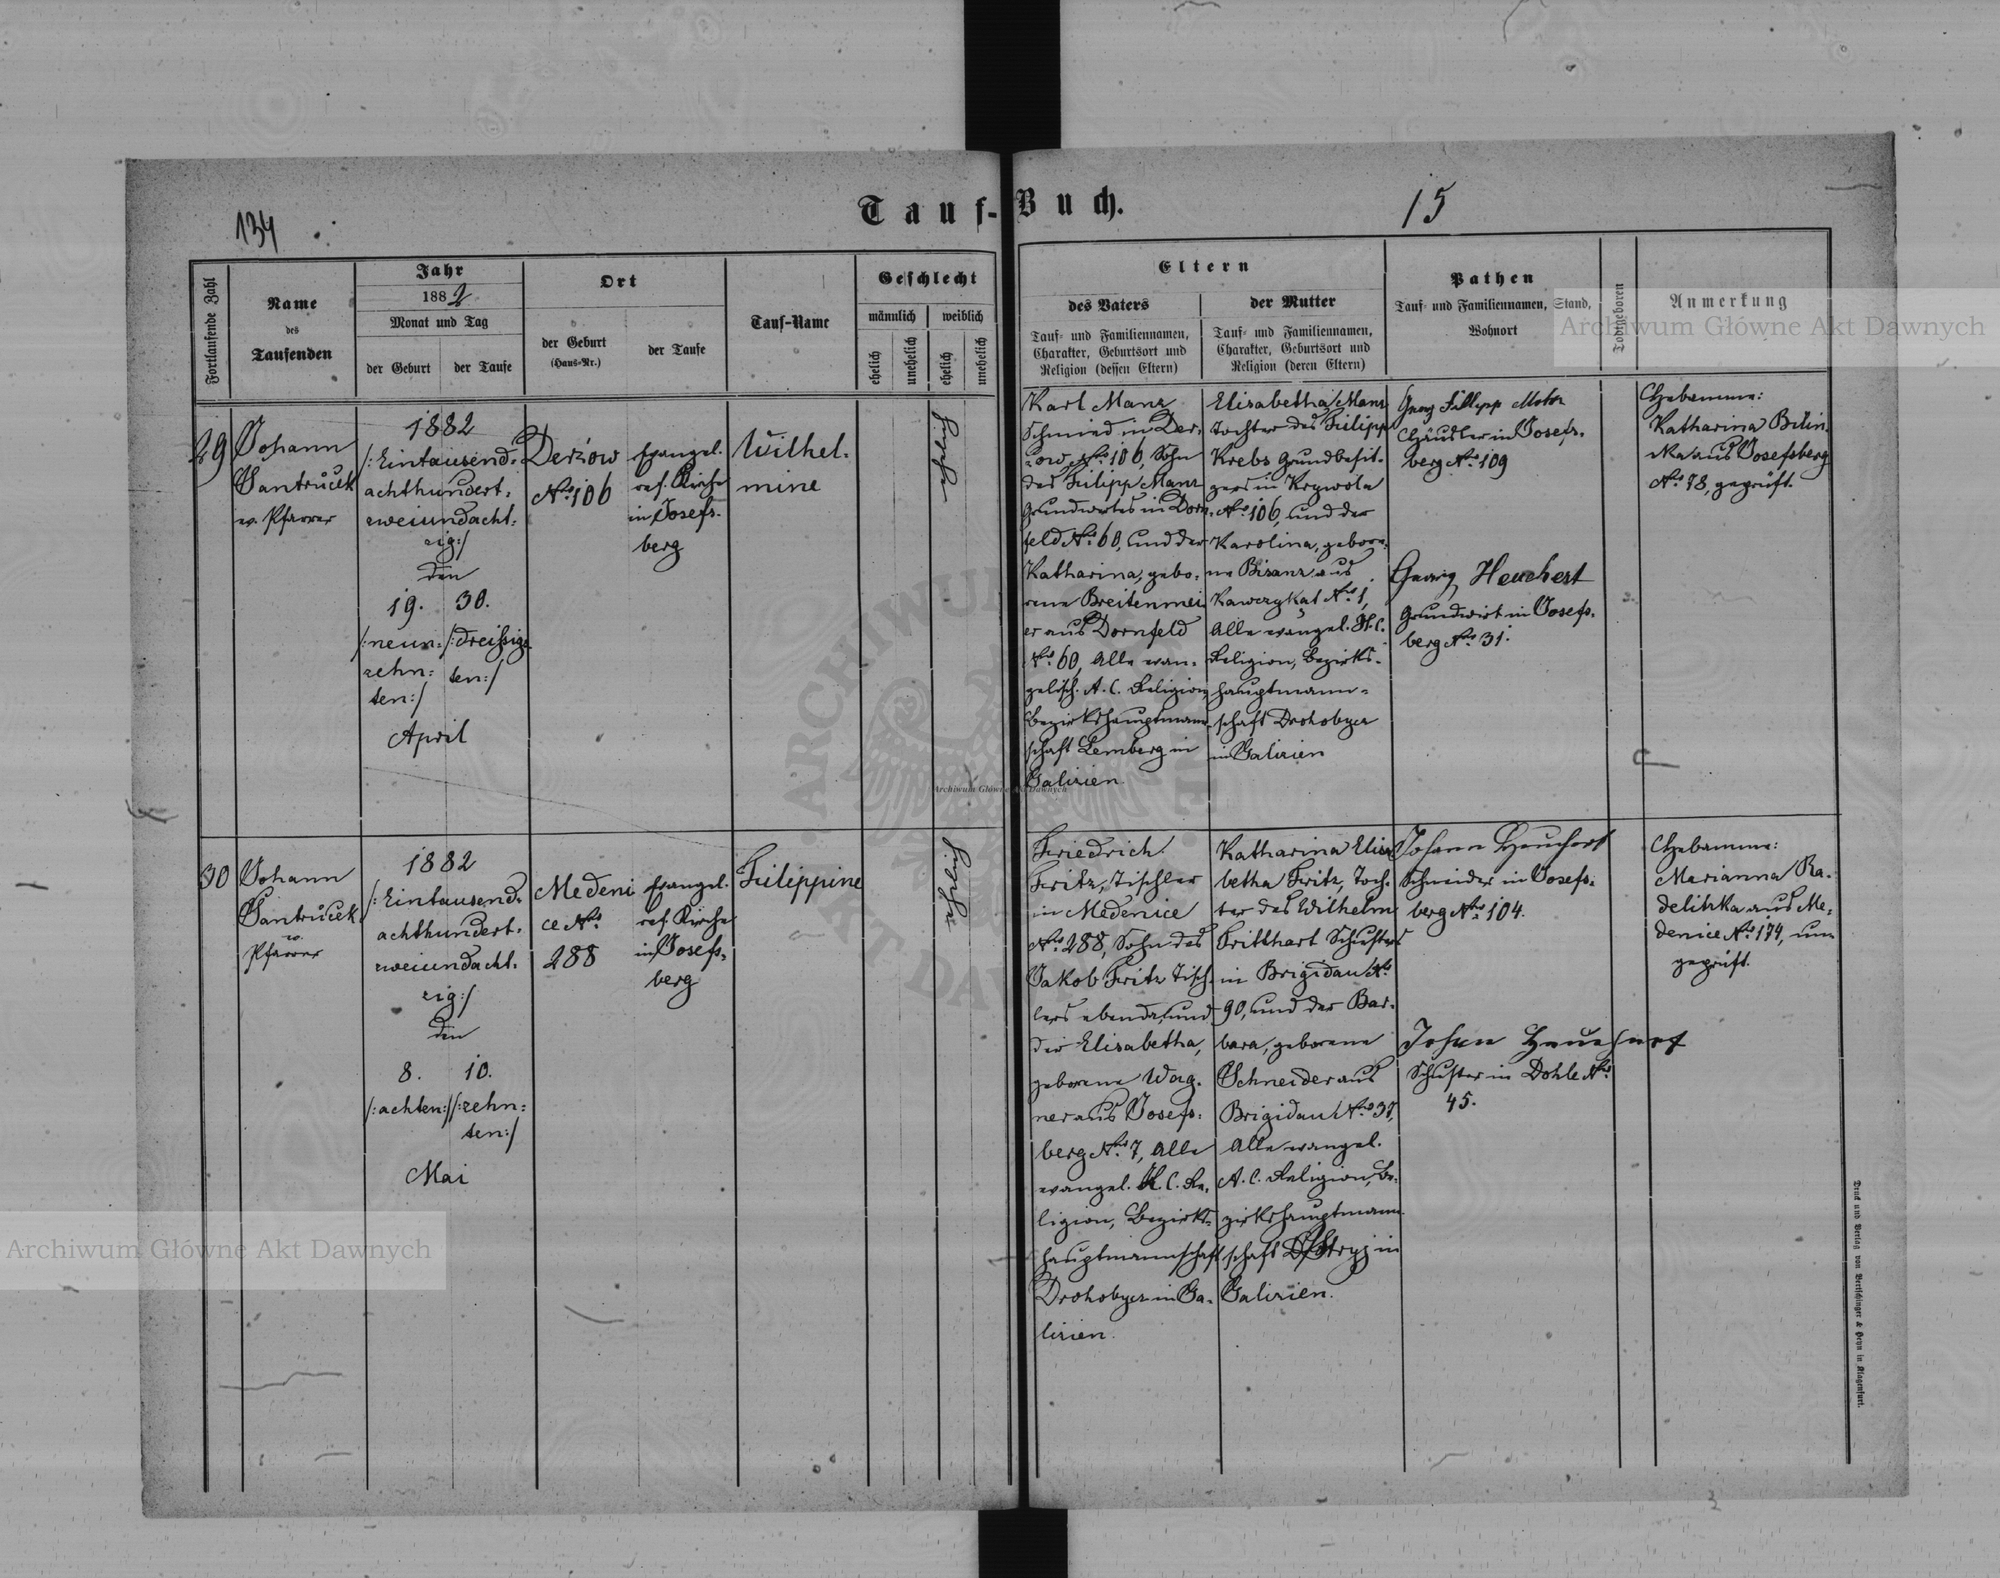 134
Tauf-Buch.
15
Fortlaufende Zahl
Name
des
Taufenden
Jahr
1882
Monat und Tag
der Geburt
der Taufe
Ort
der Geburt
(Haus-Nr.)
der Taufe
Tauf-Name
Geschlecht
männlich
weiblich
ehelich
unehelich
ehelich
unehelich
Eltern
des Vaters
Tauf- und Familiennamen,
Charakter, Geburtsort und
Religion (dessen Eltern)
der Mutter
Tauf- und Familiennamen,
Charakter, Geburtsort und
Religion (deren Eltern)
Pathen
Tauf- und Familiennamen, Stand,
Wohnort
Todtgeboren
Anmerkung
29
Johann
Šantrůček
ev. Pfarrer
1882
/:Eintausend-
achthundert-
zweiundacht-
zig:/
den
19. 30.
/:neun- /:dreißig-
zehn- ten:/
ten:/
April
Derżow
No 106
Evangel.
ref. Kirche
in Josefs-
berg
Wilhel-
mine
Karl Manz
Schmied in Der-
żow No 106, Sohn
des Filipp Manz
Grundwirtes in Dorn-
feld No 60, und der
Katharina, gebo-
rene Breitenmei
er aus Dornfeld
No 60, Alle evan-
gelisch. A. C. Religion
Bezirkshauptmann-
schaft Lemberg in
Galizien.
Elisabetha Manz
Tochter des Filipp
Krebs Grundbesit-
zers in Krywola
No 106, und der
Karolina, gebore-
ne Bisanz aus
Kawczykąt No 1,
Alle evangel. H. C.
Religion, Bezirks-
hauptmann-
schaft Drohobycz
in Galizien
Georg Fillipp
Häusler in Josefs-
berg No 109
Georg Heuchert
Grundwirt in Josefs-
berg No 31.
Hebamme:
Katharina
aus Josefsberg
No 78, geprüft.
30
Johann
Šantrůček
ev.
Pfarrer
1882
/:Eintausend-
achthundert-
zweiundacht-
zig:/
den
8. 10.
/:achten:/ /:zehn-
ten:/
Mai
Medeni
ce No
288
Evangel.
ref. Kirche
in Josefs-
berg
Filippine
Friedrich
Fritz, Tischler
in Medenice
No 288, Sohn des
Jakob Fritz Tisch-
lers ebenda, und
der Elisabetha,
geborene Wag-
ner aus Josefs-
berg No 7, Alle
evangel. H. C. Re-
ligion, Bezirks-
hauptmannschaft
Drohobycz in Ga-
lizien.
Katharina Elisa
betha Fritz, Toch-
ter des Wilhelm
Fritthart Schusters
in Brigidau No
90, und der Bar-
bara, geborene
Schneider aus
Brigidau No 37,
Alle evangel.
A. C. Religion, Be-
zirkshauptmann-
schaft Stryj in
Galizien.
Johann Heuchert
Schneider in Josefs-
berg No 104.
Johann Heuchert
Schuster in Dohle No
45.
Hebamme:
Marianna Ra-
delitzka aus Me-
denice No 174, un-
geprüft.
Druck und Verlag von Bertschinger & Heyn in Klagenfurt.
Archiwum Główne Akt Dawnych
Archiwum Główne Akt Dawnych
Archiwum Główne Akt Dawnych